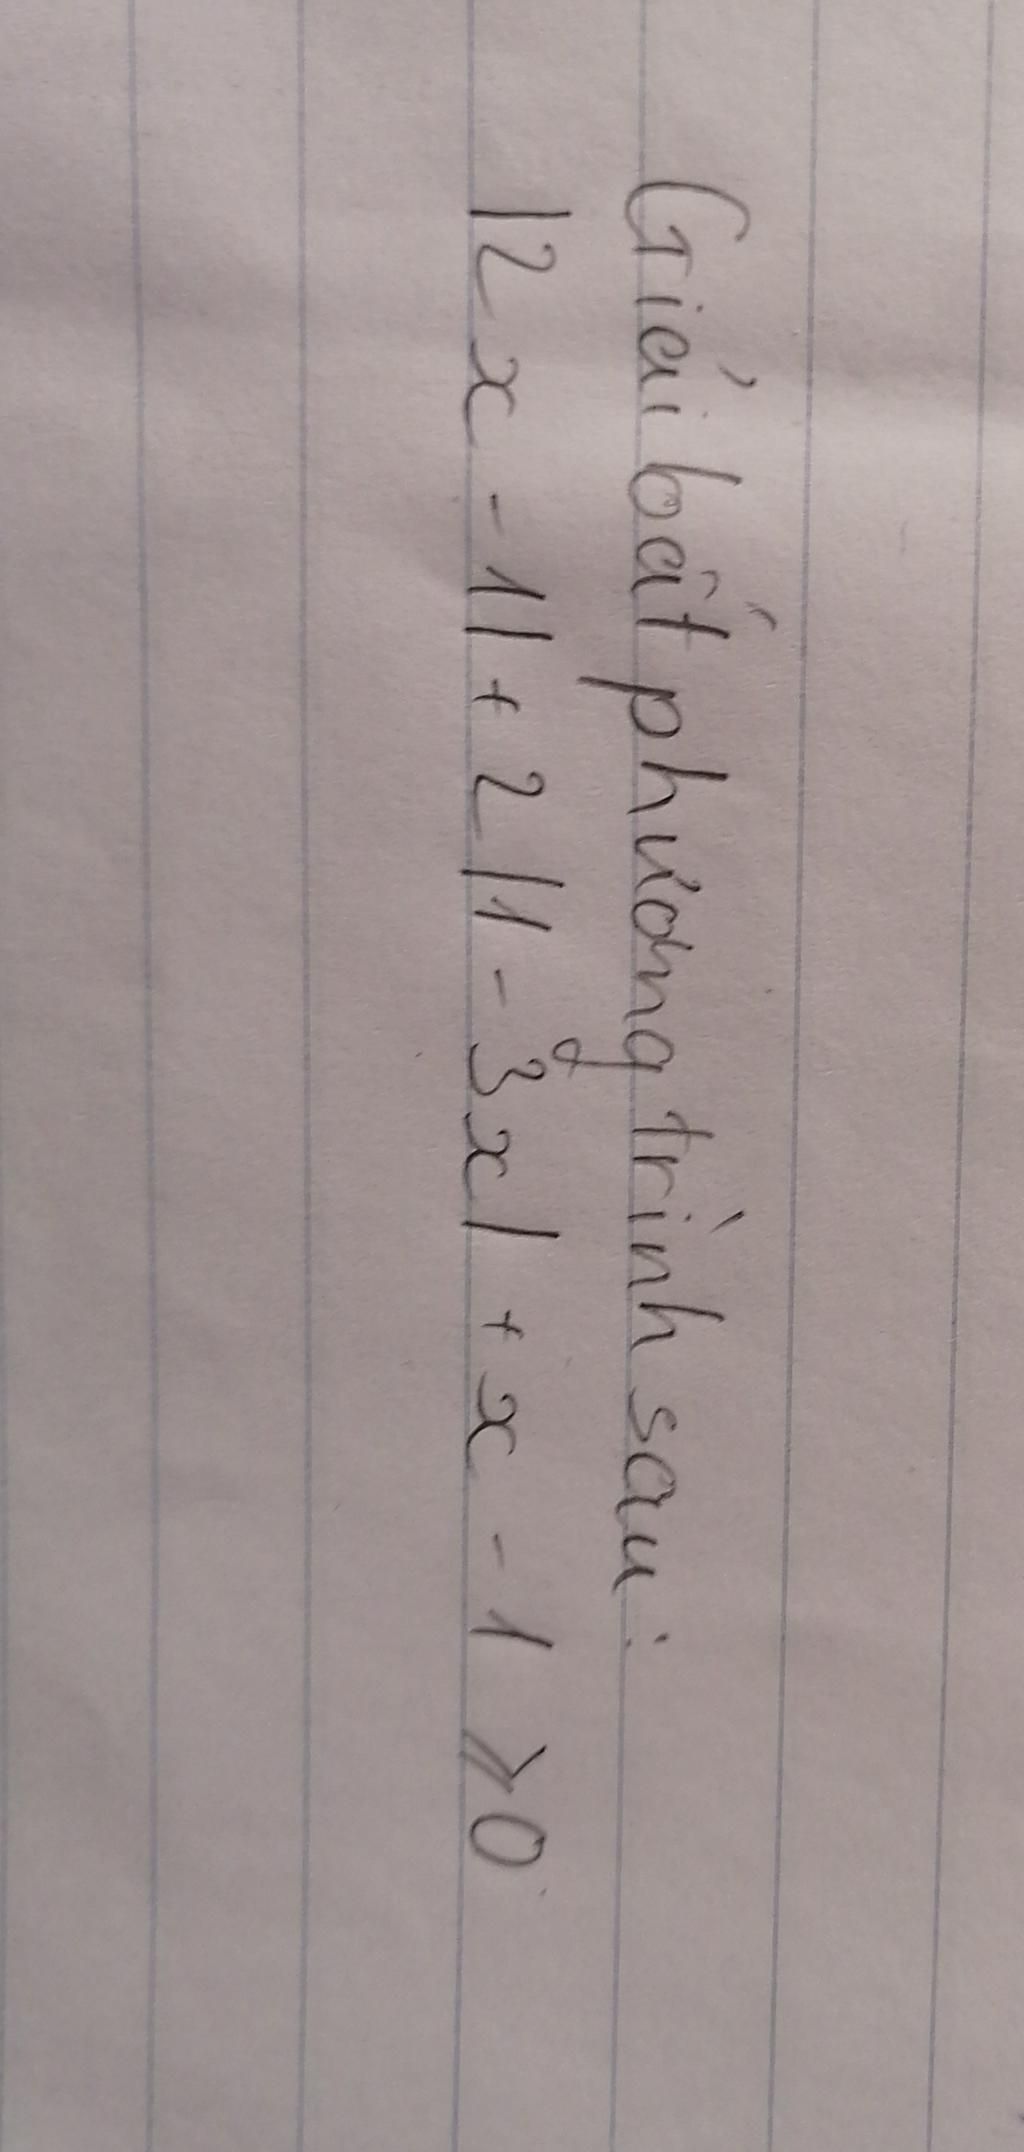 Giải bất phương trình sau:
|2x - 1| + 2 |1 - 3x| + x - 1 ⩾ 0